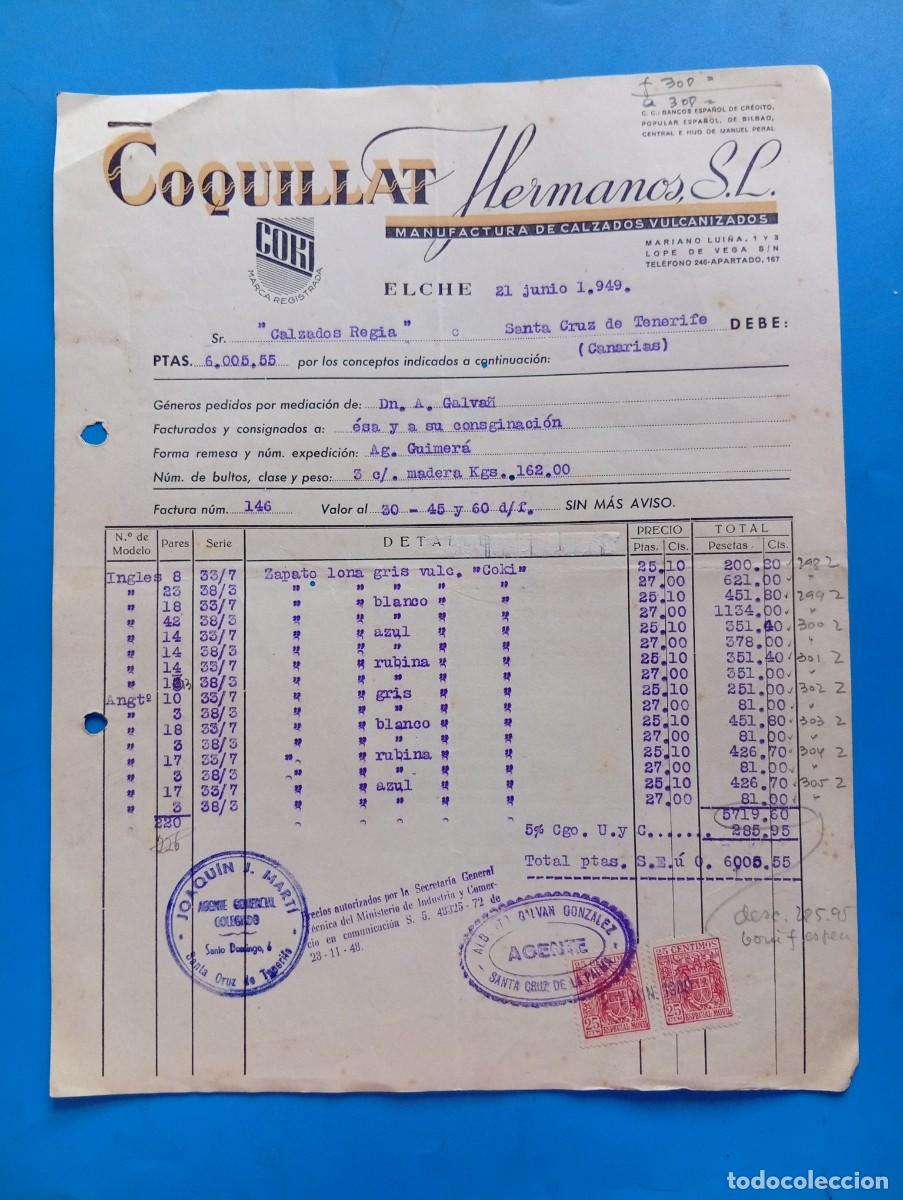 f 300 =
a 300 =
C. C.: BANCOS ESPAÑOL DE CRÉDITO,
POPULAR ESPAÑOL, DE BILBAO,
CENTRAL E HIJO DE MANUEL PERAL
COQUILLAT Hermanos, S.L.
MANUFACTURA DE CALZADOS VULCANIZADOS
COKI
MARCA REGISTRADA
MARIANO LUIÑA, 1 Y 3
LOPE DE VEGA S/N
TELÉFONO 246-APARTADO, 167
ELCHE 21 junio 1.949.
Sr. "Calzados Regia" c Santa Cruz de Tenerife DEBE:
(Canarias)
PTAS. 6.005,55 por los conceptos indicados a continuación:
Géneros pedidos por mediación de: Dn. A. Galvañ
Facturados y consignados a: ésa y a su consginación
Forma remesa y núm. expedición: Ag. Guimerá
Núm. de bultos, clase y peso: 3 c/. madera Kgs. 162.00
Factura núm. 146 Valor al 30 - 45 y 60 d/f. SIN MÁS AVISO.
N.º de Modelo Pares Serie DETAL PRECIO Ptas. Cts. TOTAL Pesetas Cts.
Ingles 8 33/7 Zapato lona gris vulc. "Coki" 25.10 200.80 298 2
" 23 38/3 " " " " " 27.00 621.00 "
" 18 33/7 " " blanco " " 25.10 451.80 299 2
" 42 38/3 " " " " " 27.00 1134.00 "
" 14 33/7 " " azul " " 25.10 351.40 300 2
" 14 38/3 " " " " " 27.00 378.00 "
" 14 33/7 " " rubina " " 25.10 351.40 301 2
" 13 38/3 " " " " " 27.00 351.00 "
Angtº 10 33/7 " " gris " " 25.10 251.00 302 2
" 3 38/3 " " " " " 27.00 81.00 "
" 18 33/7 " " blanco " " 25.10 451.80 303 2
" 3 38/3 " " " " " 27.00 81.00 "
" 17 33/7 " " rubina " " 25.10 426.70 304 2
" 3 38/3 " " " " " 27.00 81.00 "
" 17 33/7 " " azul " " 25.10 426.70 305 2
" 3 38/3 " " " " " 27.00 81.00 "
220 5719.60
226 5% Cgo. U.y C...... 285.95
Total ptas. S.E.ú O. 6005.55
JOAQUÍN J. MARTÍ
AGENTE COMERCIAL
COLEGIADO
Santo Domingo, 6
Santa Cruz de Tenerife
Precios autorizados por la Secretaría General
Técnica del Ministerio de Industria y Comer-
cio en comunicación S. 5. 49325-72 de
23-11-48.
GALVAN GONZALEZ
AGENTE
SANTA CRUZ DE LA PALMA
desc. 285.95
25 CENTIMOS
25 CTS
ESPECIAL MOVIL
25 CENTIMOS
25 CTS
ESPECIAL MOVIL
todocoleccion